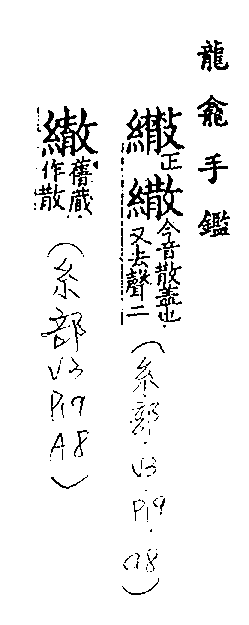 龍龕手鑑
正繖今音散蓋也又去聲二（系部.V3 P19 a8）
舊藏作散（系部 V3 P19 A8）